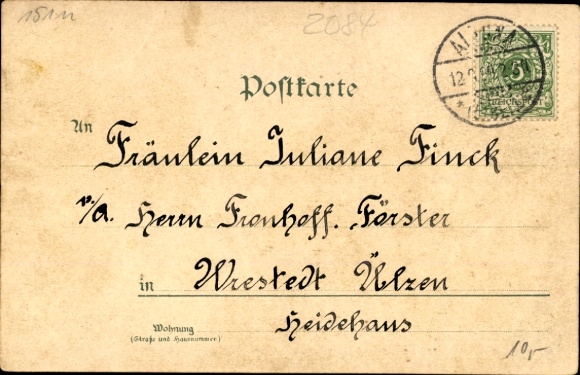 151m
2084
ALTONA
12.
5
REICHSPOST
Postkarte
An
Fräulein Juliane Finck
p/A. Herrn Fronhoff. Förster
in Wrestedt Ülzen
Heidehaus
Wohnung
(Straße und Hausnummer)
10,-